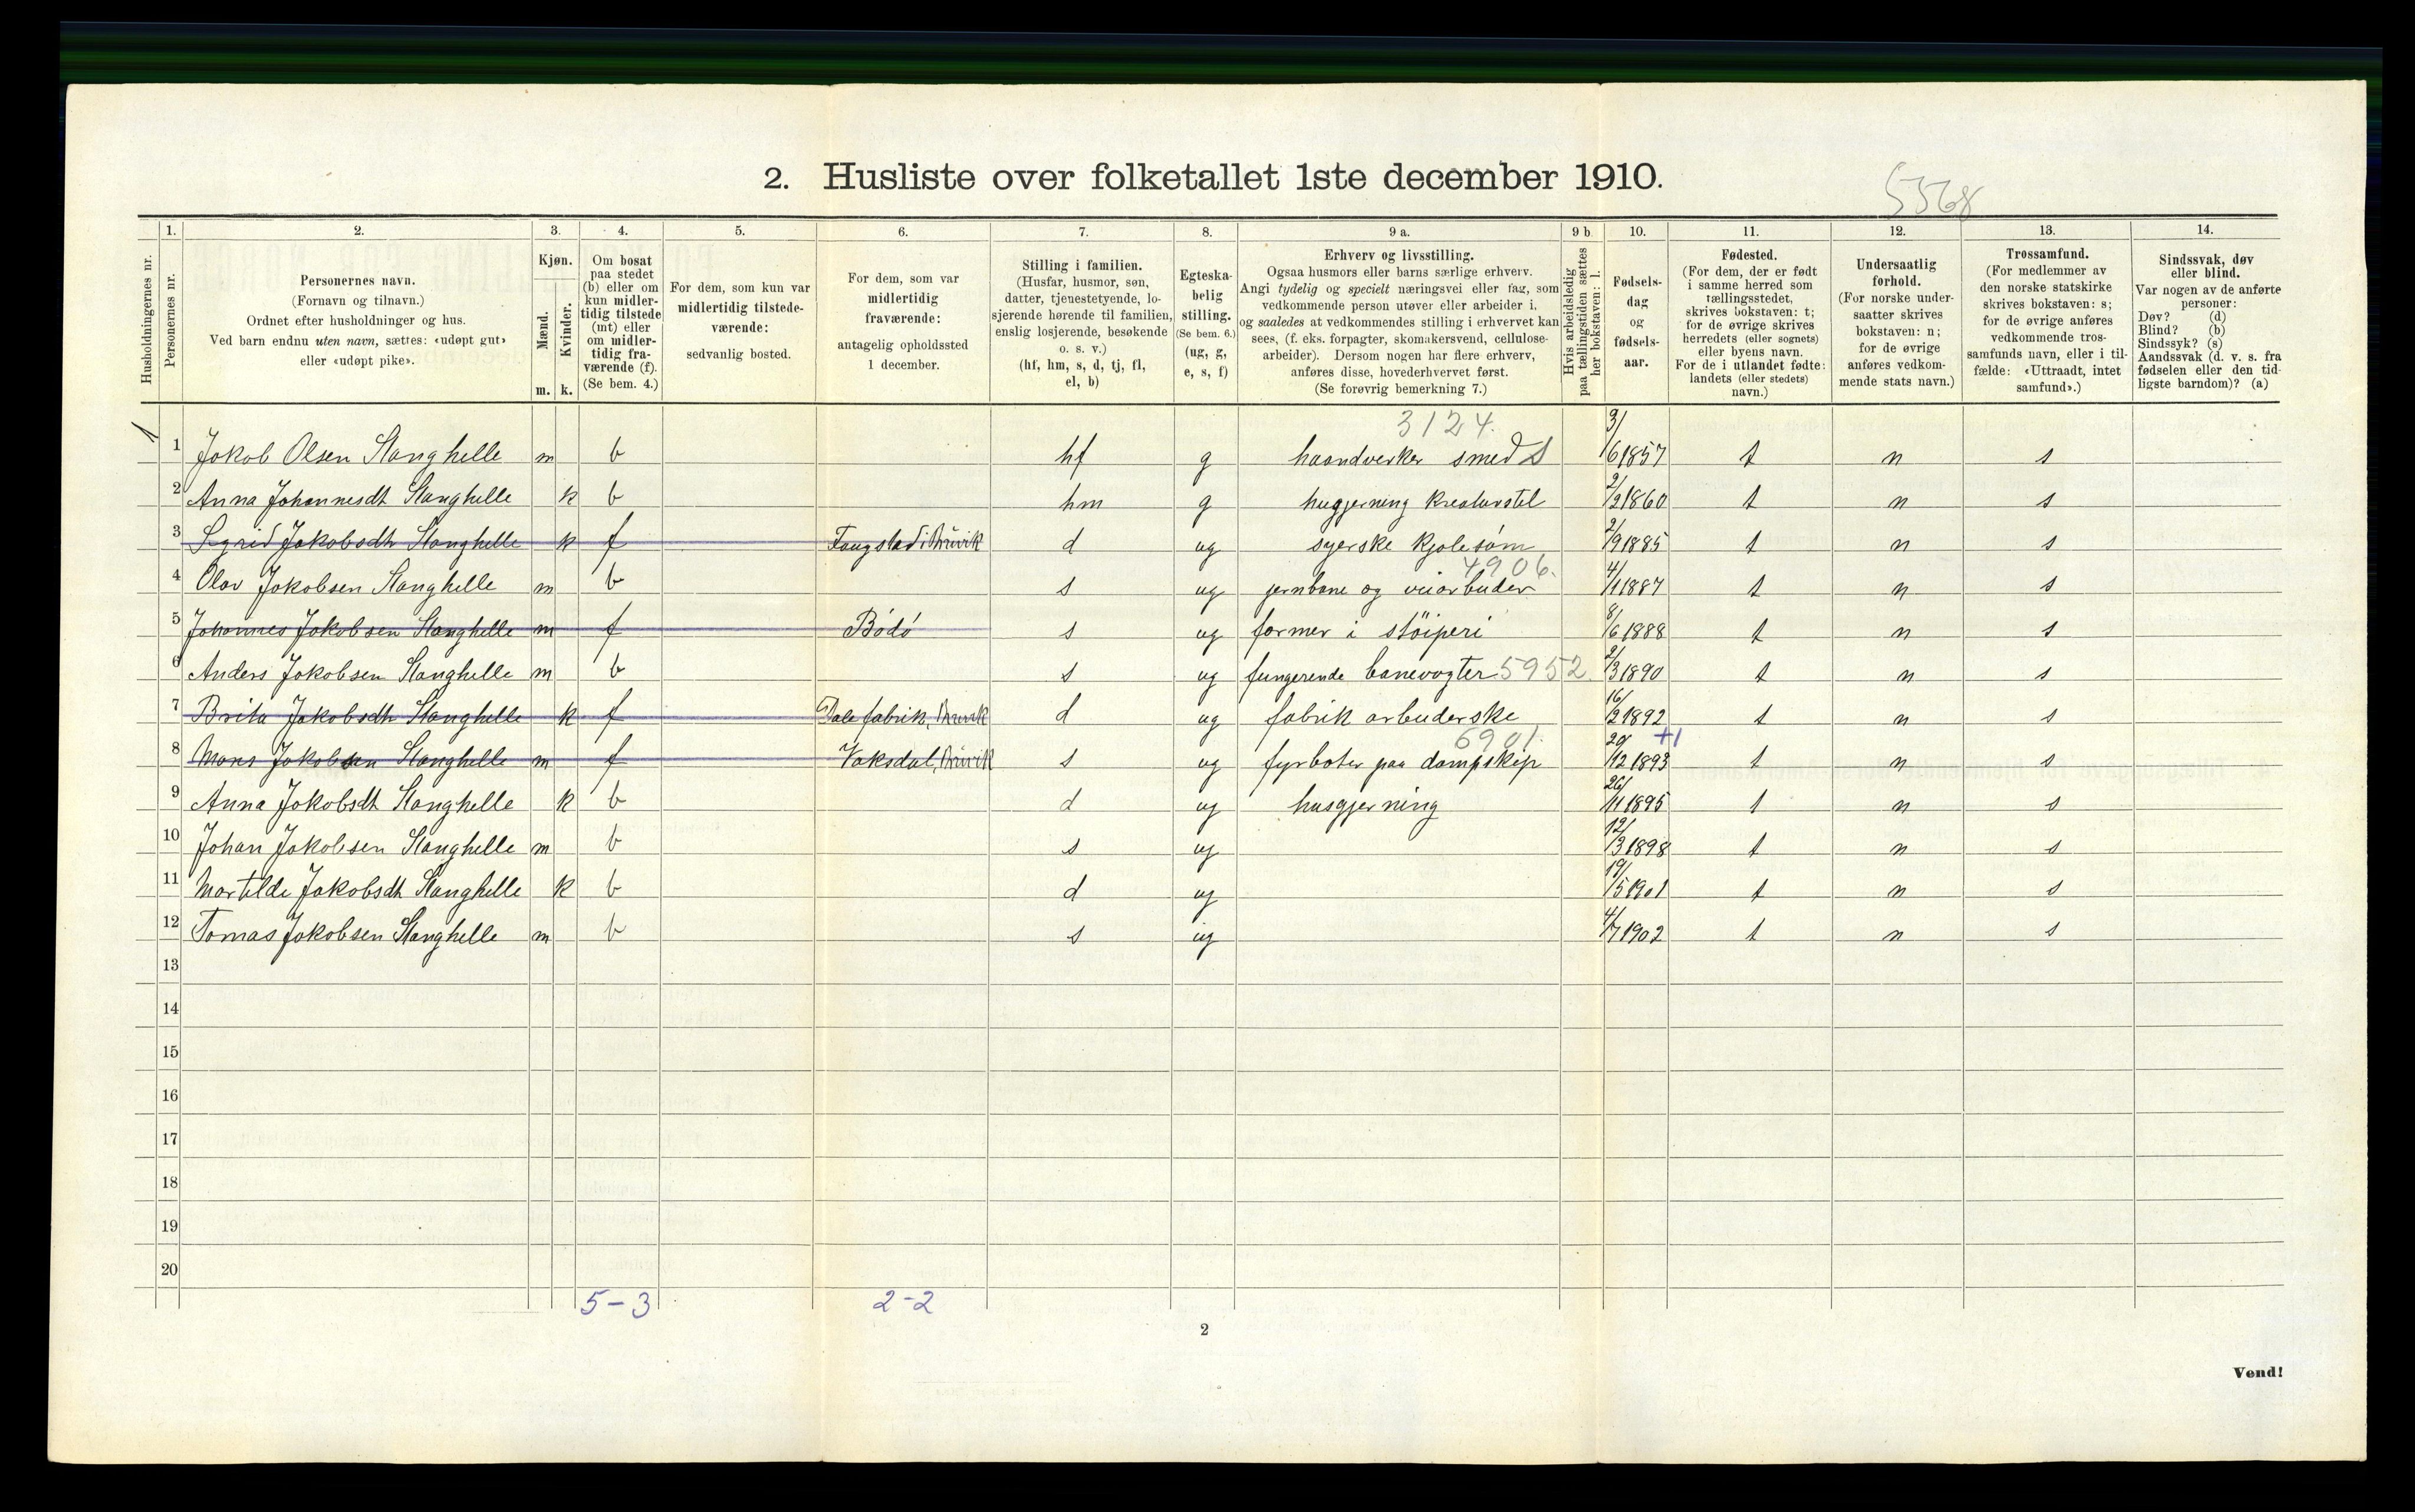 2. Husliste over folketallet 1ste december 1910.
5568
Husholdningernes nr.
1.
Personernes nr.
2.
Personernes navn.
(Fornavn og tilnavn.)
Ordnet efter husholdninger og hus.
Ved barn endnu uten navn, sættes: «udøpt gut»
eller «udøpt pike».
3.
Kjøn.
Mænd.
m.
Kvinder.
k.
4.
Om bosat
paa stedet
(b) eller om
kun midler-
tidig tilstede
(mt) eller
om midler-
tidig fra-
værende (f).
(Se bem. 4.)
5.
For dem, som kun var
midlertidig tilstede-
værende:
sedvanlig bosted.
6.
For dem, som var
midlertidig
fraværende:
antagelig opholdssted
1 december.
7.
Stilling i familien.
(Husfar, husmor, søn,
datter, tjenestetyende, lo-
sjerende hørende til familien,
enslig losjerende, besøkende
o. s. v.)
(hf, hm, s, d, tj, fl,
el, b)
8.
Egteska-
belig
stilling.
(Se bem. 6.)
(ug, g,
e, s, f)
9 a.
Erhverv og livsstilling.
Ogsaa husmors eller barns særlige erhverv.
Angi tydelig og specielt næringsvei eller fag, som
vedkommende person utøver eller arbeider i,
og saaledes at vedkommendes stilling i erhvervet kan
sees, (f. eks. forpagter, skomakersvend, cellulose-
arbeider). Dersom nogen har flere erhverv,
anføres disse, hovederhvervet først.
(Se forøvrig bemerkning 7.)
9 b.
Hvis arbeidsledig
paa tællingstiden sættes
her bokstaven: l.
10.
Fødsels-
dag
og
fødsels-
aar.
11.
Fødested.
(For dem, der er født
i samme herred som
tællingsstedet,
skrives bokstaven: t;
for de øvrige skrives
herredets (eller sognets)
eller byens navn.
For de i utlandet fødte:
landets (eller stedets)
navn.)
12.
Undersaatlig
forhold.
(For norske under-
saatter skrives
bokstaven: n;
for de øvrige
anføres vedkom-
mende stats navn.)
13.
Trossamfund.
(For medlemmer av
den norske statskirke
skrives bokstaven: s;
for de øvrige anføres
vedkommende tros-
samfunds navn, eller i til-
fælde: «Uttraadt, intet
samfund».)
14.
Sindssvak, døv
eller blind.
Var nogen av de anførte
personer:
Døv? (d)
Blind? (b)
Sindssyk? (s)
Aandssvak (d. v. s. fra
fødselen eller den tid-
ligste barndom)? (a)
3124.
1 1 Jokob Olsen Stanghelle m b hf g haandverker smed S 3/6 1857 t n s
2 Anna Johannesdt Stanghelle k b hm g husgjerning kreaturstel 2/2 1860 t n s
3 Sigrid Jakobsdt Stanghelle k f Fougstad i Bruvik d ug syerske kjolesøm 2/9 1885 t n s
4906.
4 Olav Jakobsen Stanghelle m b s ug jernbane og veiarbeider 4/1 1887 t n s
5 Johannes Jakobsen Stanghelle m f Bódó s ug former i støiperi 8/6 1888 t n s
6 Anders Jakobsen Stanghelle m b s ug fungerende banevogter 5952 2/3 1890 t n s
7 Brita Jakobsdt Stanghelle k f Dale fabrik, Bruvik d ug fabrik arbeiderske 16/2 1892 t n s
6901. +1
8 Mons Jakobsen Stanghelle m f Vaksdal, Bruvik s ug fyrbøter paa dampskip 20/12 1893 t n s
9 Anna Jakobsdt Stanghelle k b d ug husgjerning 26/11 1895 t n s
10 Johan Jakobsen Stanghelle m b s ug 12/3 1898 t n s
11 Martilde Jakobsdt Stanghelle k b d ug 19/5 1901 t n s
12 Tomas Jakobsen Stanghelle m b s ug 4/7 1902 t n s
13
14
15
16
17
18
19
20
5-3 2-2
2
Vend!